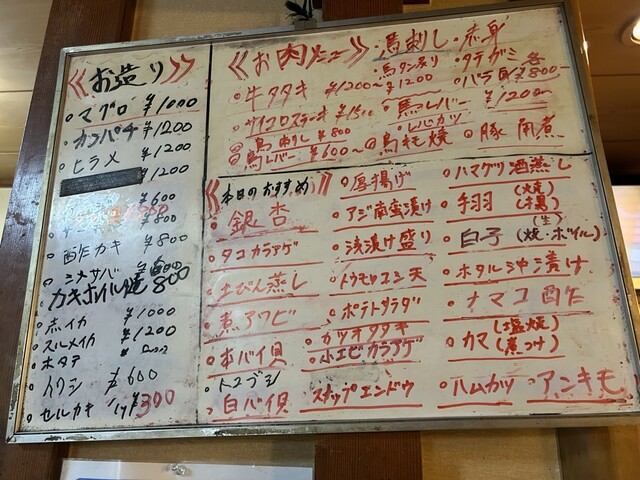 《お造り》
・マグロ ¥1000
・カンパチ ¥1200
・ヒラメ ¥1200
¥1200
¥600
¥800
・酢カキ ¥800
・シメサバ ¥800
カキホイル焼 800
・ホイカ ¥1000
・スルメイカ ¥1200
・ホタテ
・イワシ ¥600
・セルカキ 1ケ ¥300
《お肉メニュー》
・馬刺し・赤身
・牛タタキ ¥1200〜
・馬タン炙り ¥1200
・タテガミ
・サイコロステーキ ¥1500
・馬レバー
・バラ 各¥800〜
¥1200〜
◎鳥刺し ¥800
レバカツ
◎鳥レバー ¥600〜
◎鳥モモ焼
◎豚角煮
《本日のおすすめ》
・銀杏
・タコカラアゲ
・土びん蒸し
・煮アワビ
・本バイ貝
・トコブシ
・白バイ貝
・厚揚げ
・アジ南蛮漬け
・浅漬け盛り
・トウモロコシ天
・ポテトサラダ
・カツオタタキ
・小エビカラアゲ
・スナップエンドウ
・ハマグリ酒蒸し
・手羽 (焼) (揚)
・白子 (生) (焼・ボイル)
・ホタル沖漬け
・ナマコ酢
・カマ (塩焼) (煮つけ)
・ハムカツ
・アンキモ